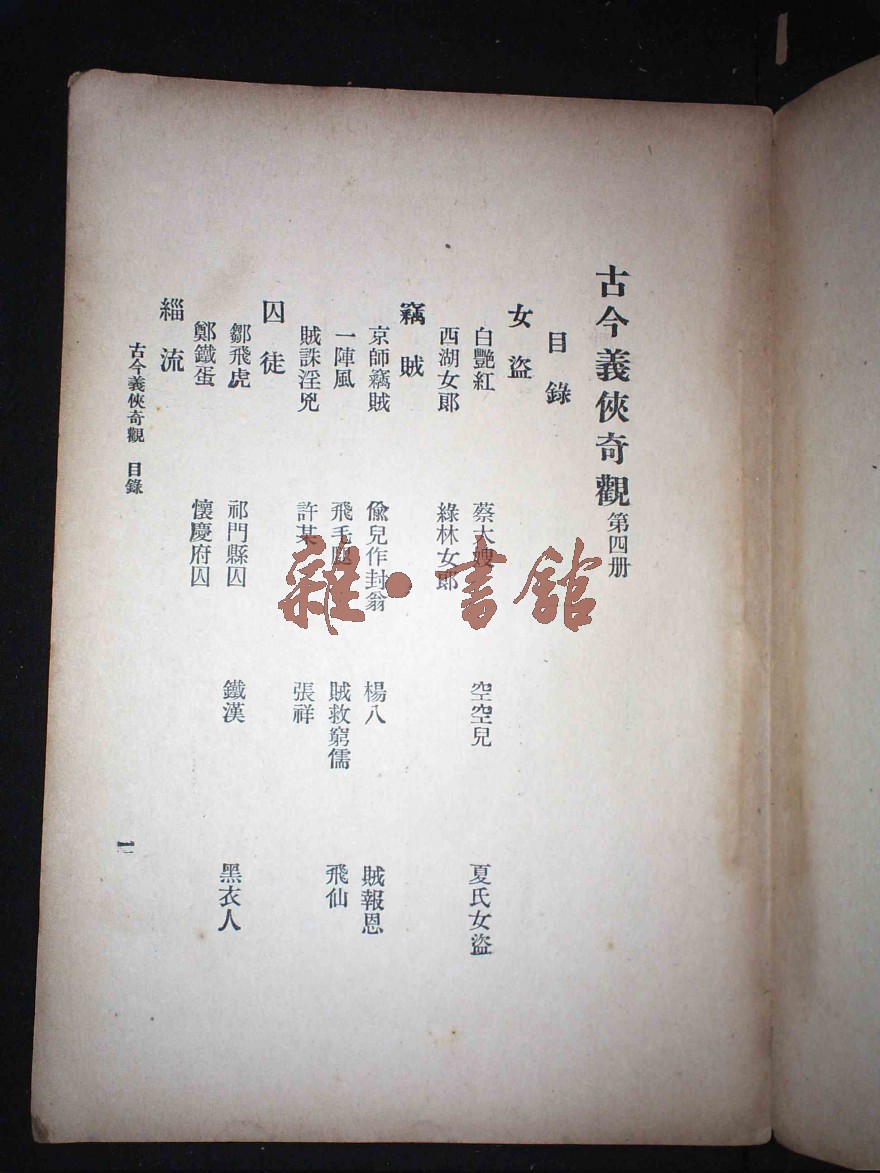 古今義俠奇觀第四册
目錄
女盜
白艷紅 蔡大嫂 空空兒 夏氏女盜
西湖女郎 綠林女郎
竊賊
京師竊賊 偸兒作封翁 楊八 賊報恩
一陣風 飛毛腿 賊救窮儒 飛仙
賊誅淫兇 許某 張祥
囚徒
鄒飛虎 祁門縣囚 鐵漢 黑衣人
鄭鐵蛋 懷慶府囚
緇流
古今義俠奇觀 目錄 一
雜·書館